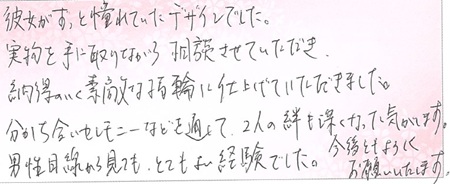 彼女がずっと憧れていたデザインでした。
実物を手に取りながら相談させていただき、
納得のいく素敵な指輪に仕上げていただきました。
分かち合いセレモニーなどを通して、2人の絆も深くなった気がします。
男性目線から見ても、とてもよい経験でした。今後ともよろしく
お願いいたします。